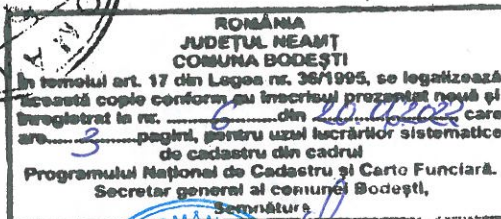 ROMÂNIA
JUDEȚUL NEAMȚ
COMUNA BODEȘTI
În temeiul art. 17 din Legea nr. 36/1995, se legalizează
această copie conform cu înscrisul prezentat nouă și
înregistrat la nr. 6 din 20 care
are 3 pagini, pentru uzul lucrărilor sistematice
de cadastru din cadrul
Programului Național de Cadastru și Carte Funciară.
Secretar general al comunei Bodești,
Semnătura